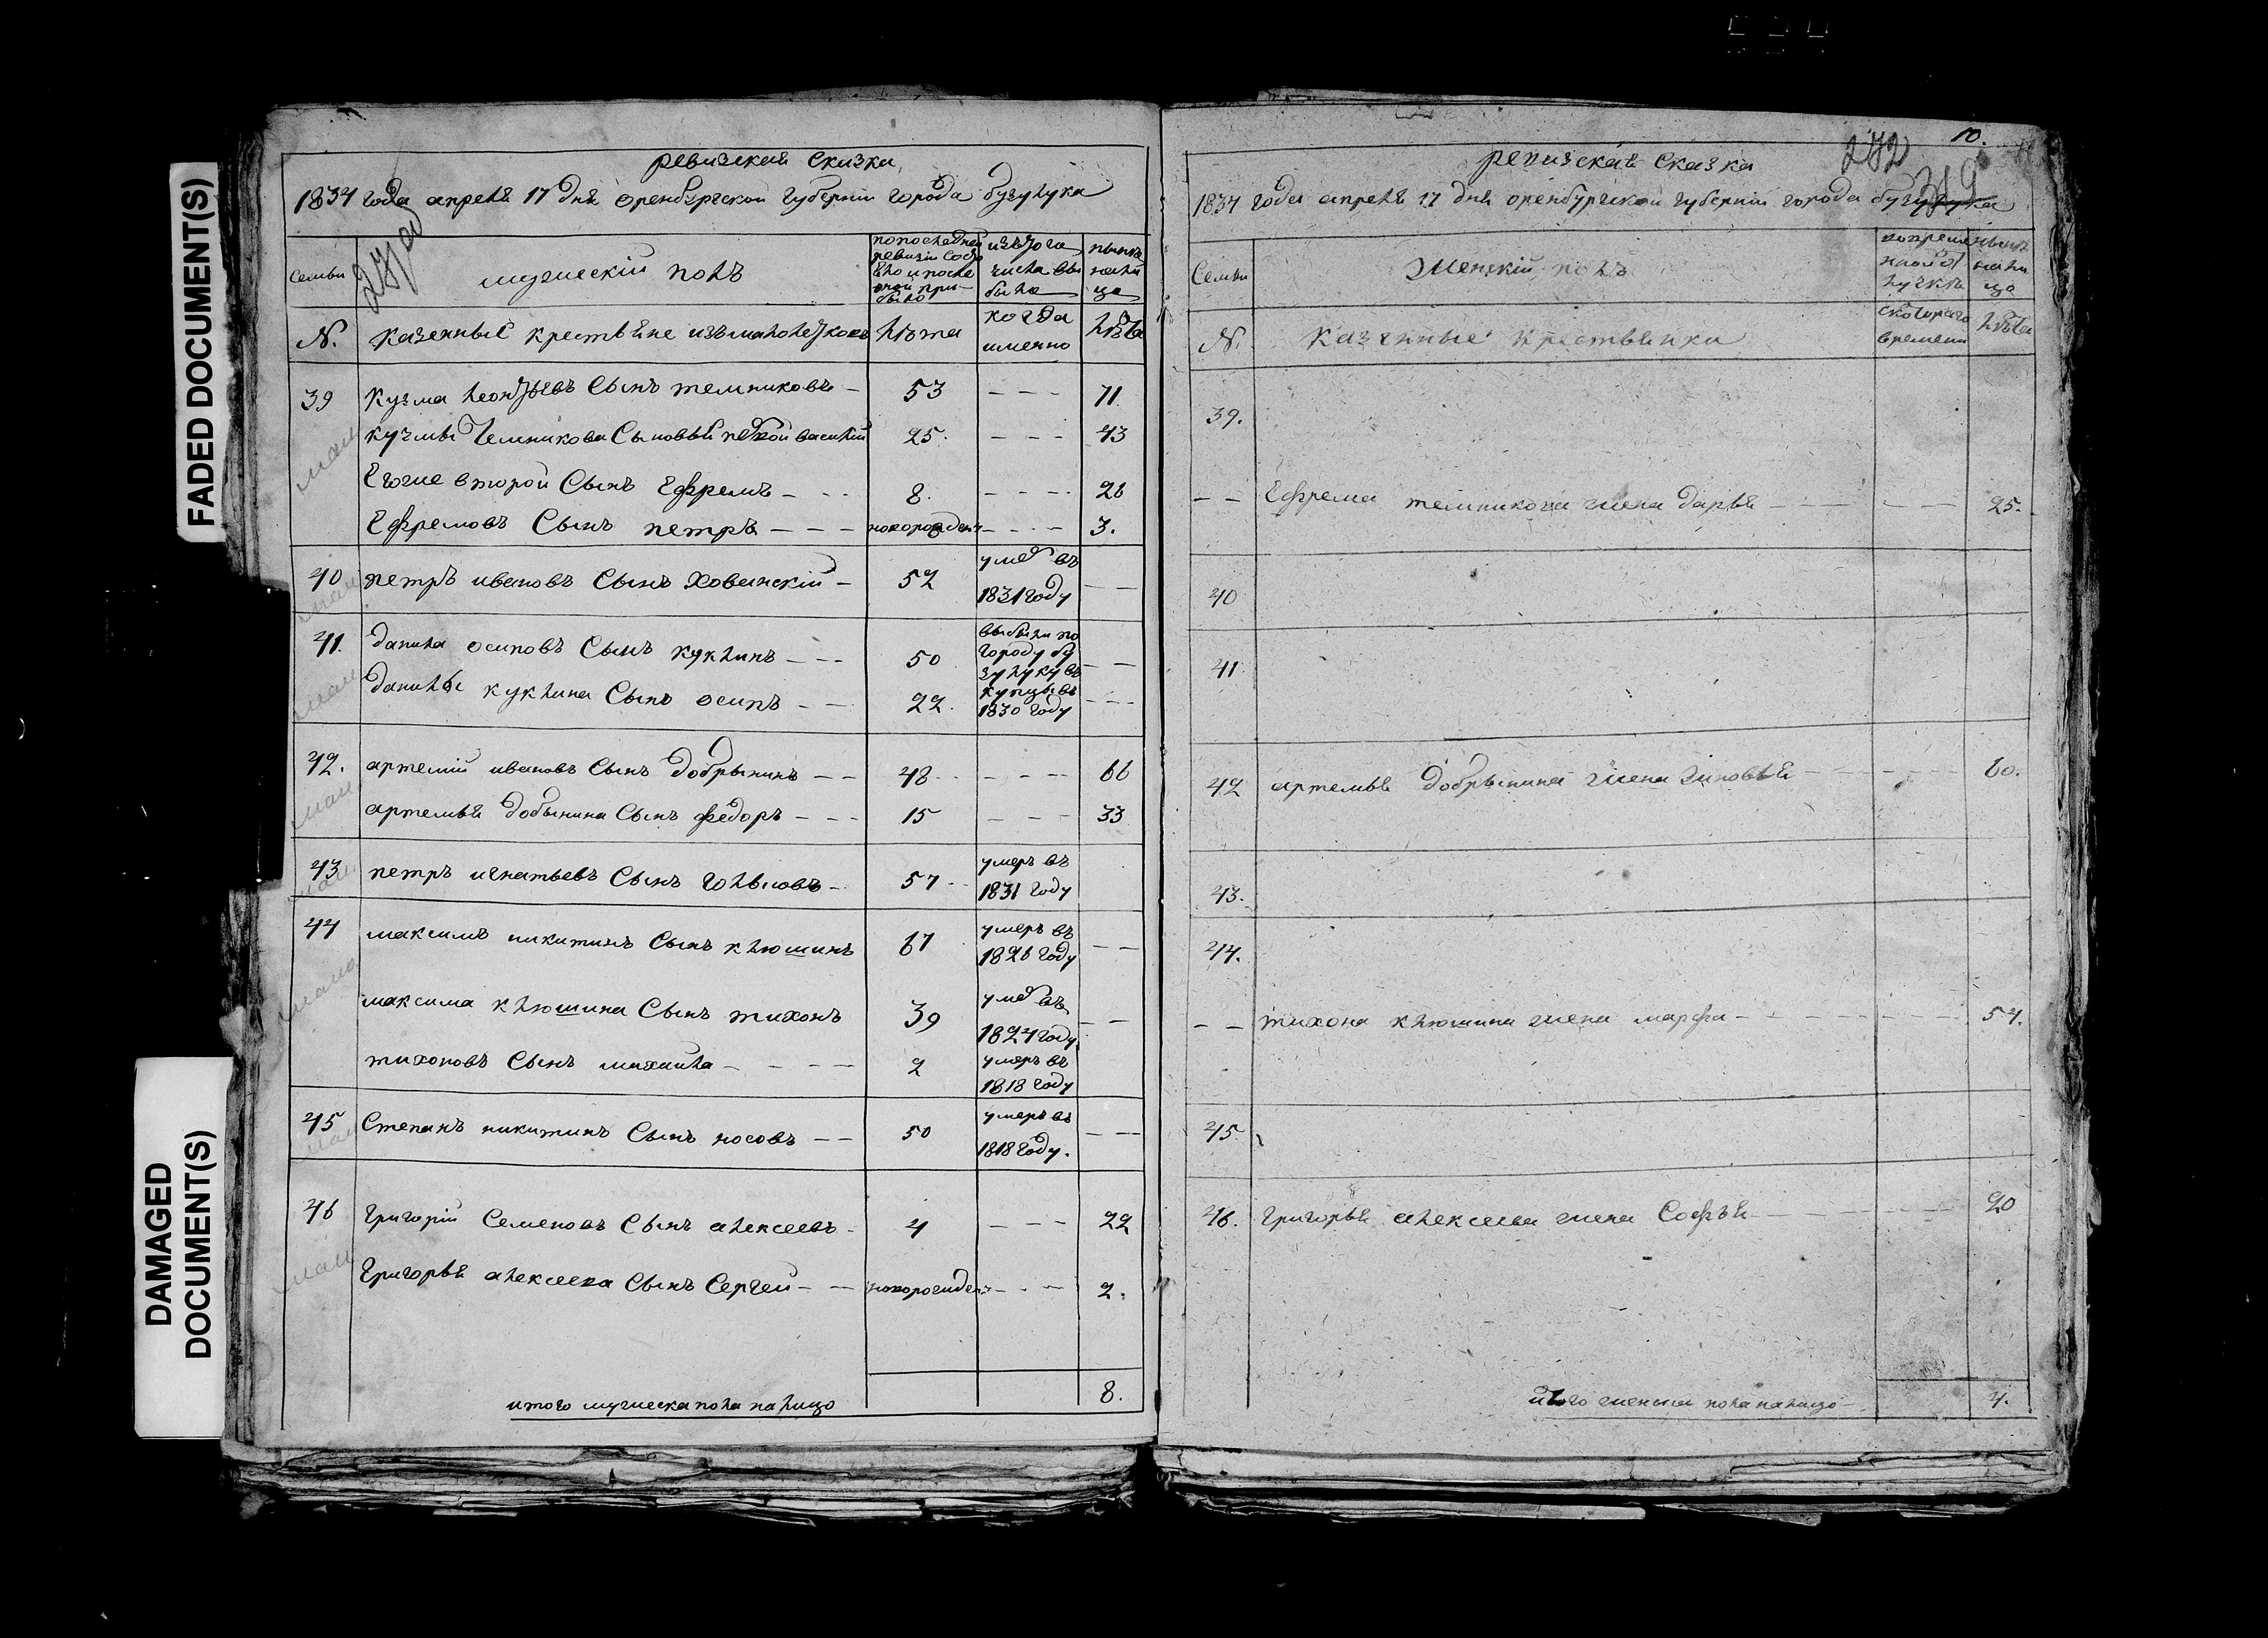 FADED DOCUMENT(S)
DAMAGED
DOCUMENT(S)
ревизская Сказка
1834 года апреля 17 дня оренбургской губернии города бузулука
Семьи
мужеский полъ
по последней ревизии состояло и после оной прибыло
изъ того числа выбыло
ныне налицо
N.
казенные крестьяне изъ малолетковъ
лѣта
когда именно
лѣта
39 Кузма леонтьевъ Сынъ темниковъ – 53 – – – 71
кузмы Темникова Сыновья первой василий 25. – – – 43
Егоже второй Сынъ Ефремъ – – – 8. – – – 26
Ефремовъ Сынъ петръ – – – новорожден – – – 3.
40 петръ ивановъ Сынъ Хованский – 52 умеръ въ 1831 году – –
41. данила осиповъ Сынъ куклинъ – – – 50 – –
данилы куклина Сынъ осипъ – – 22. – – –
выбыли по городу бузулуку въ купцы въ 1830 году
42. артемий ивановъ Сынъ Добрынинъ – – 48 – – – 66
артемья Добынина Сынъ федоръ – – – 15 – – – 33
43 петръ игнатьевъ Сынъ голысовъ – 57 умеръ въ 1831 году
44 максимъ никитинъ Сынъ клюшинъ 67 умеръ въ 1826 году – –
максима клюшина Сынъ тихонъ 39 умеръ въ 1824 году – –
тихоновъ Сынъ михаила – – – – 2 умеръ въ 1818 году
45 Степанъ никитинъ Сынъ носовъ – – 50 умеръ въ 1818 году. – –
46 Григорий Семеновъ Сынъ алексеевъ – 4 – – – 22
Григорья алексеева Сынъ Сергей – – новорожден – – – 2.
итого мужеска пола налицо 8.
10.
272
ревизская Сказка
1834 года апреля 17 дня оренбургской губернии города бузулука
Семьи
Женский полъ
во временной отлучке
ныне налицо
N.
Казенные крестьянки
с котораго времени
лѣта
39.
– – Ефрема темникова жена дарья – – – 25.
40
41
42 артемья Добрынина жена зиновья – – – 60.
43.
44.
– – тихона клюшина жена марфа – – – 54.
45.
46. Григорья алексеева жена Софья – – – 20
итого женска пола налицо 4.